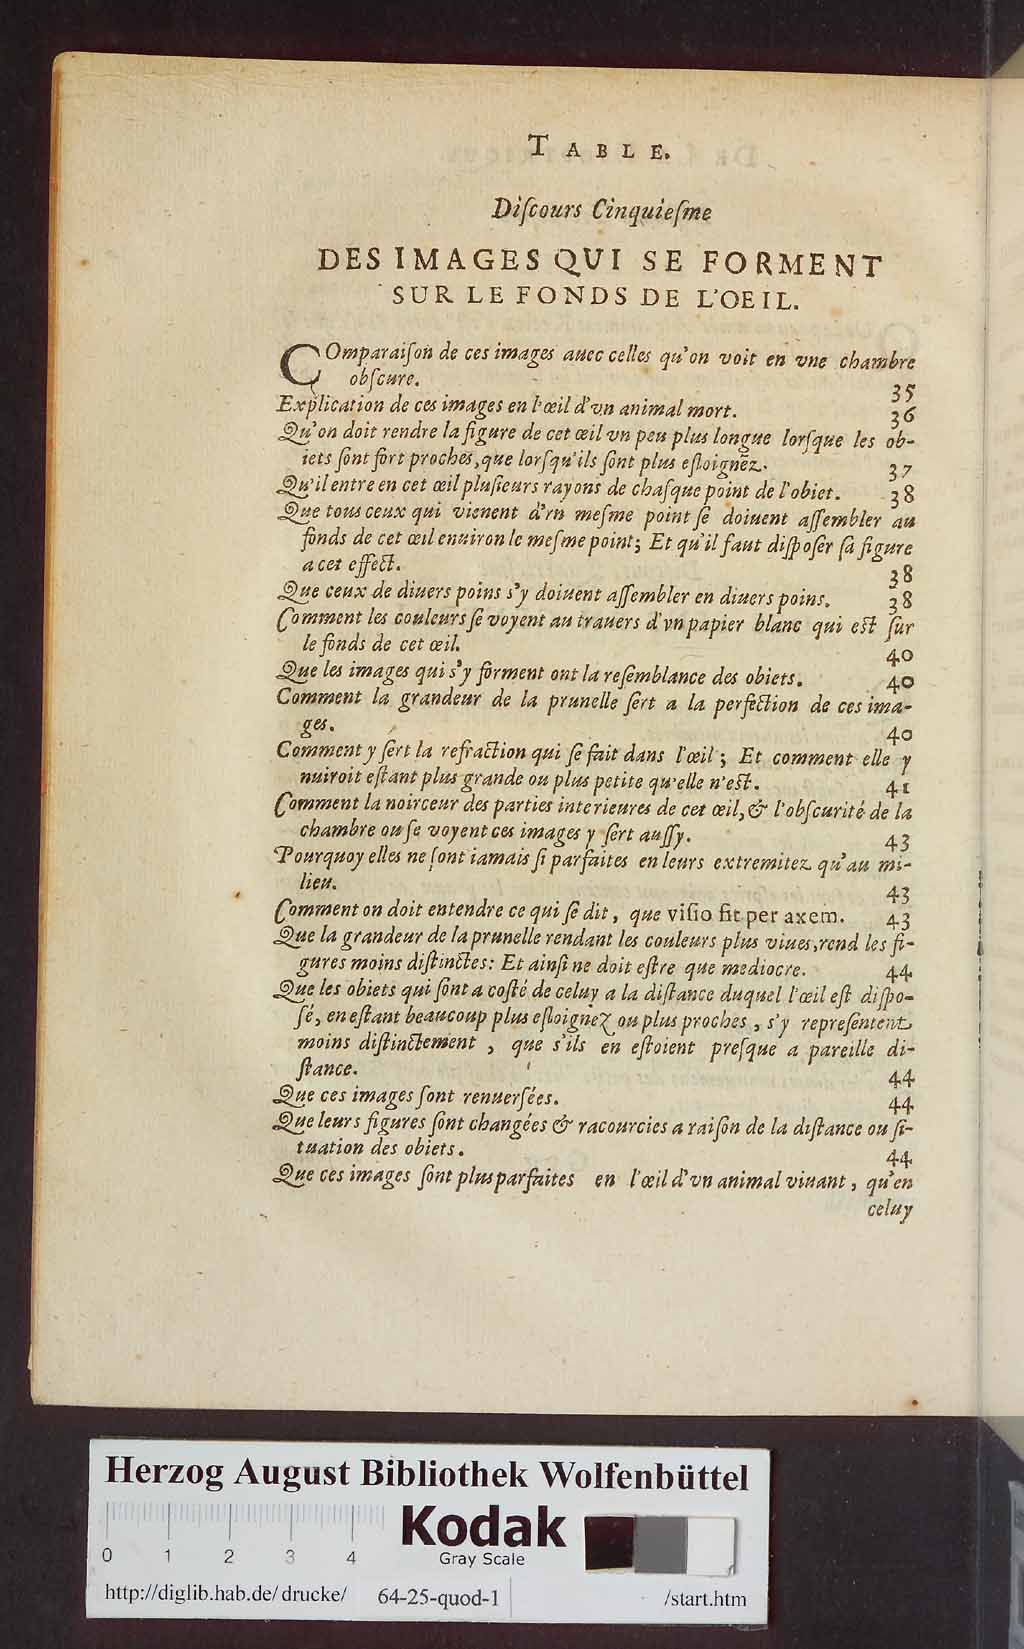 TABLE.
Diſcours Cinquieſme
DES IMAGES QVI SE FORMENT
SUR LE FONDS DE L'OEIL.
COmparaiſon de ces images auec celles qu'on voit en vne chambre
obſcure. 35
Explication de ces images en l'œil d'vn animal mort. 36
Qu'on doit rendre la figure de cet œil vn peu plus longue lorſque les ob-
iets ſont fort proches, que lorſqu'ils ſont plus eſloignez. 37
Qu'il entre en cet œil pluſieurs rayons de chaſque point de l'obiet. 38
Que tous ceux qui vienent d'vn meſme point ſe doiuent aſſembler au
fonds de cet œil enuiron le meſme point; Et qu'il faut diſpoſer ſa figure
a cet effect. 38
Que ceux de diuers poins s'y doiuent aſſembler en diuers poins. 38
Comment les couleurs ſe voyent au trauers d'vn papier blanc qui eſt ſur
le fonds de cet œil. 40
Que les images qui s'y forment ont la reſemblance des obiets. 40
Comment la grandeur de la prunelle ſert a la perfection de ces ima-
ges. 40
Comment y ſert la refraction qui ſe fait dans l'œil; Et comment elle y
nuiroit eſtant plus grande ou plus petite qu'elle n'eſt. 41
Comment la noirceur des parties interieures de cet œil, & l'obſcurité de la
chambre ou ſe voyent ces images y ſert auſſy. 43
Pourquoy elles ne ſont iamais ſi parfaites en leurs extremitez qu'au mi-
lieu. 43
Comment on doit entendre ce qui ſe dit, que viſio fit per axem. 43
Que la grandeur de la prunelle rendant les couleurs plus viues, rend les fi-
gures moins diſtinctes: Et ainſi ne doit eſtre que mediocre. 44
Que les obiets qui ſont a coſté de celuy a la diſtance duquel l'œil eſt diſpo-
ſé, en eſtant beaucoup plus eſloignez ou plus proches, s'y repreſentent
moins diſtinctement, que s'ils en eſtoient preſque a pareille di-
ſtance. 44
Que ces images ſont renuerſées. 44
Que leurs figures ſont changées & racourcies a raiſon de la diſtance ou ſi-
tuation des obiets. 44
Que ces images ſont plus parfaites en l'œil d'vn animal viuant, qu'en
celuy
Herzog August Bibliothek Wolfenbüttel
Kodak
Gray Scale
0 1 2 3 4
http://diglib.hab.de/drucke/ 64-25-quod-1 /start.htm